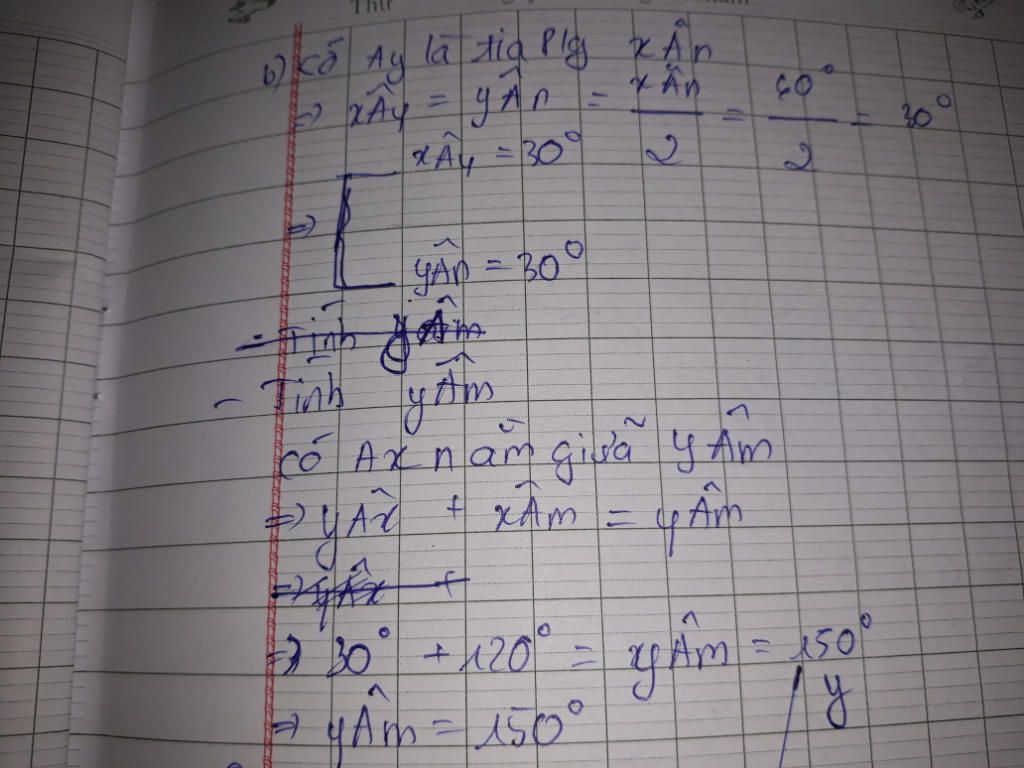 Thứ
b) Có Ay là tia Plg xÂn
=> xÂy = yÂn = xÂn/2 = 60°/2 = 30°
xÂy = 30°
=>
yÂn = 30°
- Tính yÂm
- Tính yÂm
Có Ax nằm giữa yÂm
=> yÂx + xÂm = yÂm
=> yÂx +
=> 30° + 120° = xyÂm = 150°
=> yÂm = 150°
y